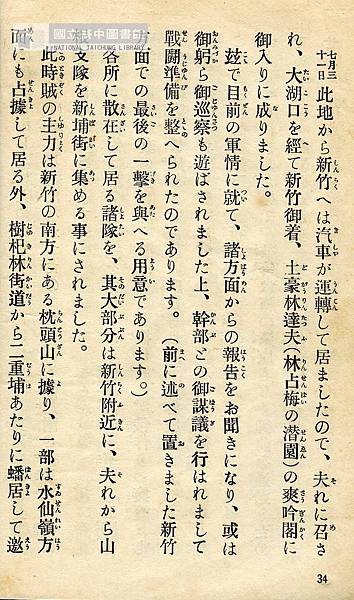 國立臺中圖書館
NATIONAL TAICHUNG LIBRARY
七月三十一日此地から新竹へは汽車が運轉して居ましたので、夫れに召さ
れ、大湖口を經て新竹御着、土豪林達夫(林占梅の潜園)の爽吟閣に
御入りに成りました。
玆で目前の軍情に就て、諸方面からの報告をお聞きになり、或は
御躬ら御巡察も遊ばされました上、幹部との御謀議を行はれまして
戰鬪準備を整へられたのであります。(前に述べて置きました新竹
方面での最後の一擊を與へる用意であります。)
各所に散在して居る諸隊を、其大部分は新竹附近に、夫れから山
支隊を新埔街に集める事にされました。
此時賊の主力は新竹の南方にある枕頭山に據り、一部は水仙嶺方
面にも占據して居る外、樹杞林街道から二重埔あたりに蟠居して邀
34